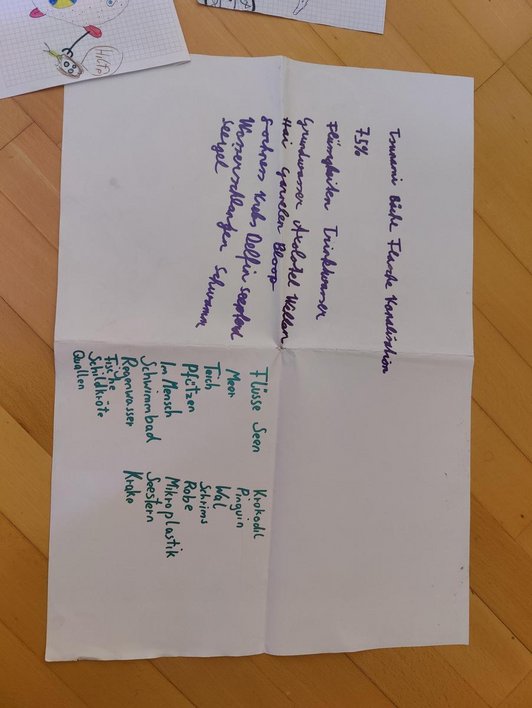 Tsunami Bäche Flasche Kanalischion
75%
Flüssigkeiten Trinkwasser
Grundwasser Axolotel Wellen
Hai Garnelen Bloop
Lochness Krebs Delfin
Wasserschlangen Schwamm
Seegel
Flüsse Seen
Meer
Teich
Pfützen
Im Mensch
Schwimmbad
Regenwasser
Fische
Schildkröte
Quallen
Krokodil
Pinguin
Wal
Schrims
Robe
Mikroplastik
Seestern
Krake